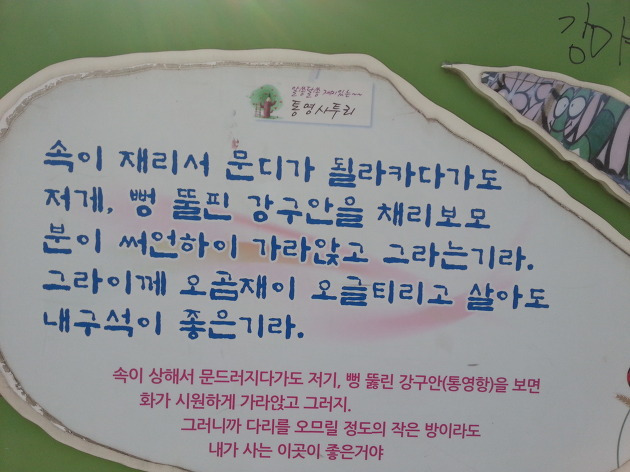 알쏭달쏭 재미있는~~
통영사투리
속이 재리서 문디가 될라카다가도
저게, 뻥 뚤핀 강구안을 채리보모
분이 써언하이 가라앉고 그라는기라.
그라이께 오곰재이 오글티리고 살아도
내구석이 좋은기라.
속이 상해서 문드러지다가도 저기, 뻥 뚫린 강구안(통영항)을 보면
화가 시원하게 가라앉고 그러지.
그러니까 다리를 오므릴 정도의 작은 방이라도
내가 사는 이곳이 좋은거야